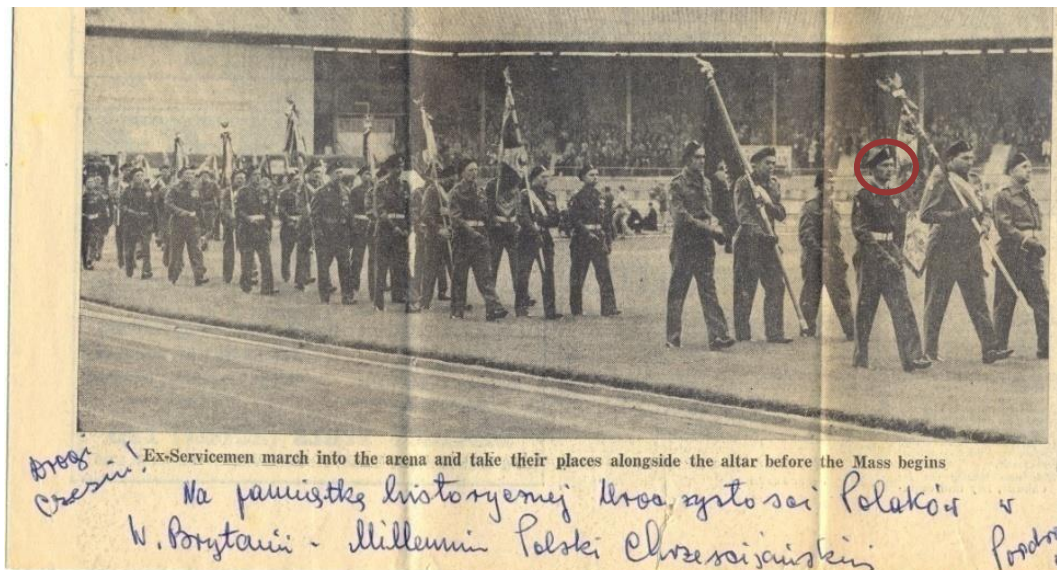 Ex-Servicemen march into the arena and take their places alongside the altar before the Mass begins
Drogi
Czesiu!
Na pamiątkę historycznej Uroczystości Polaków w
W. Brytanii - Millennium Polski Chrześcijańskiej